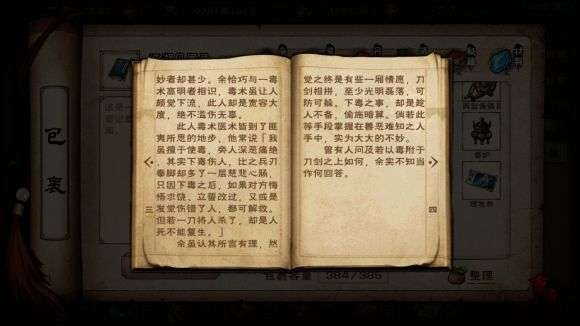 妙者却甚少。余恰巧与一毒
术高明者相识，毒术虽让人
颇觉下流，此人却是宽容大
度，绝不滥伤无辜。
此人毒术医术皆到了匪
夷所思的地步，他常说「我
虽擅于使毒，旁人深恶痛绝
，其实下毒伤人，比之兵刃
拳脚却多了一层慈悲心肠，
只因下毒之后，如果对方悔
悟求饶，立誓改过，又或是
发觉伤错了人，都可解救。
但若一刀将人杀了，却是人
死不能复生。」
余虽认其所言有理，然
三
觉之终是有些一厢情愿，刀
剑相拼，至少光明磊落，可
防可躲。下毒之事，却是趁
人不备，偷施暗算。倘若此
等手段掌握在善恶难知之人
手中，实为大大的不妙。
曾有人问及若以毒附于
刀剑之上如何，余实不知当
作何回答。
四
包裹
包裹容量
384/385
整理